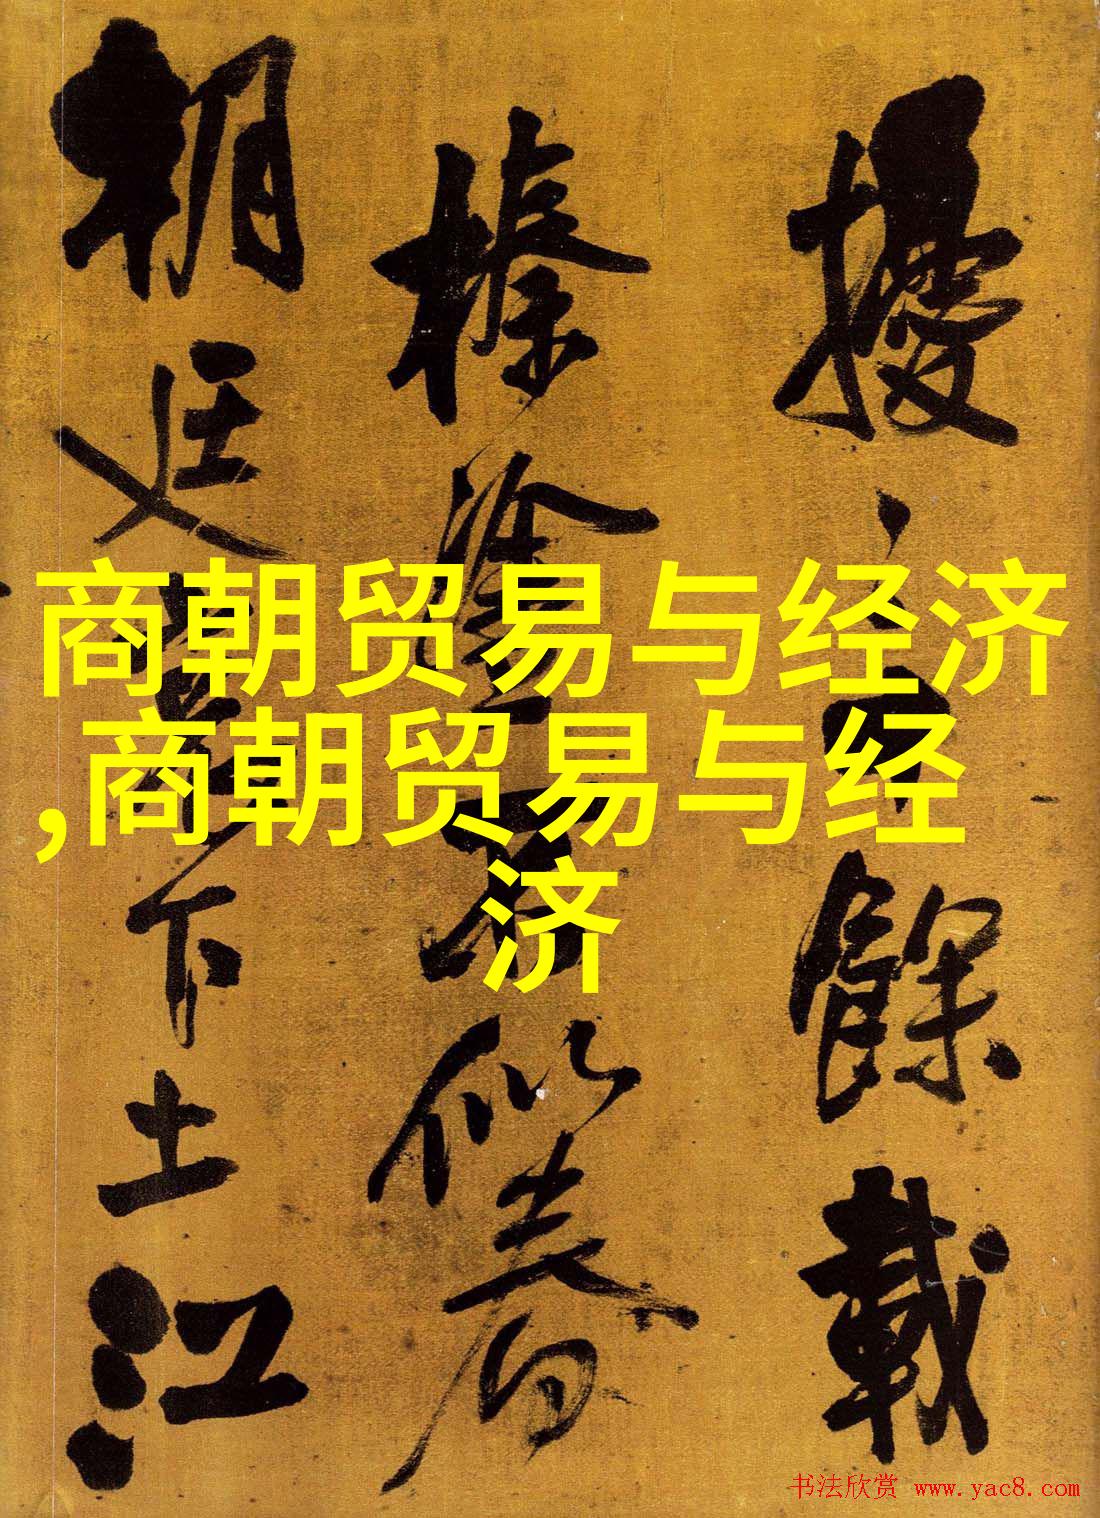 商朝贸易与经济
,商朝贸易与经
济
擾 餘載
榛塗 似
朝廷 下土江
书法欣赏 www.yac8.com